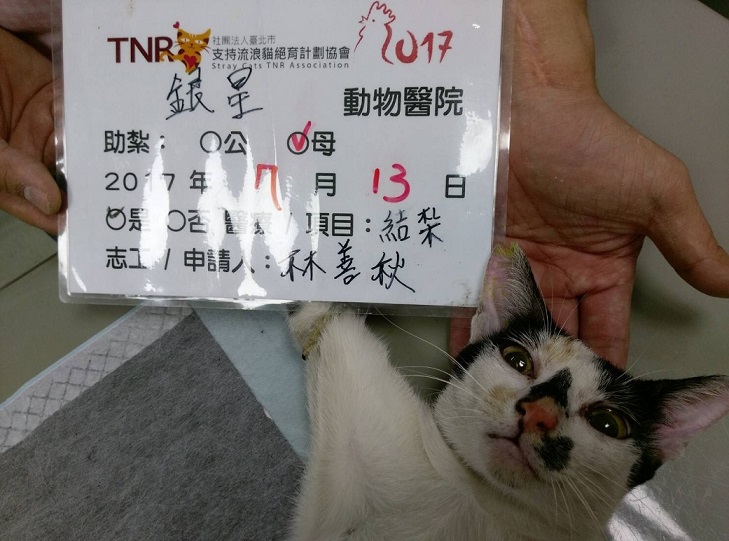 TNR 社團法人臺北市
支持流浪貓絕育計劃協會
Stray Cats TNR Association
2017
銀星 動物醫院
助紮： 公 母
2017 年 7 月 13 日
是 否 醫療 / 項目：結紮
志工 / 申請人：林善秋